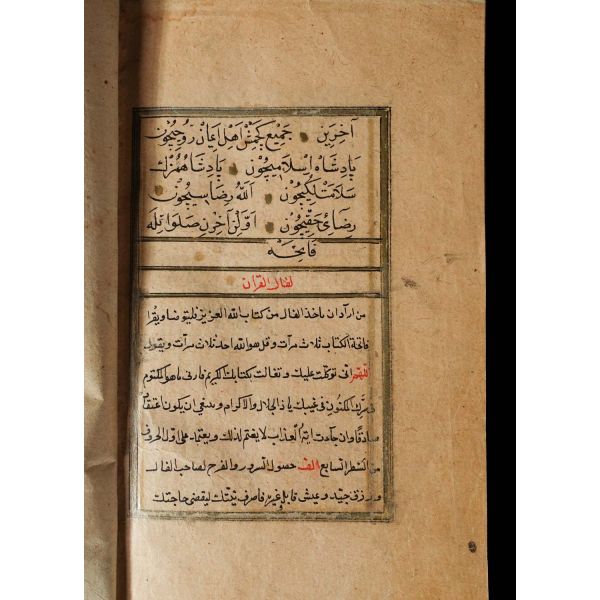 آخرين جميع كچمش اهل ايمان روحيچون
پادشاه اسلاميچون پادشاهمزك
سلامتلكيچون الله رضاسيچون
رضاى حقيچون اولن آخرن صلواتله
فاتحه
لفال القرآن
من اراد ان ياخذ الفال من كتاب الله العزيز فليتوضا ويقرا
فاتحة الكتاب ثلاث مرات وقل هو الله احد ثلاث مرات ويقول
اللهم انى توكلت عليك وتفالت بكتابك الكريم فارنى ما هو المكتوم
فى سرك المكنون فى غيبك ياذا الجلال والاكرام وينبغى ان يكون اعتقاده
صادقا وان جاءت آية العذاب لا يغتم لذلك ويعتمد على اول الحروف
من السطر السابع الف حصول السرور والفرح لصاحب الفال
ورزق جيد وعيش قابل غير فاصرف نيتك ليقضى حاجتك